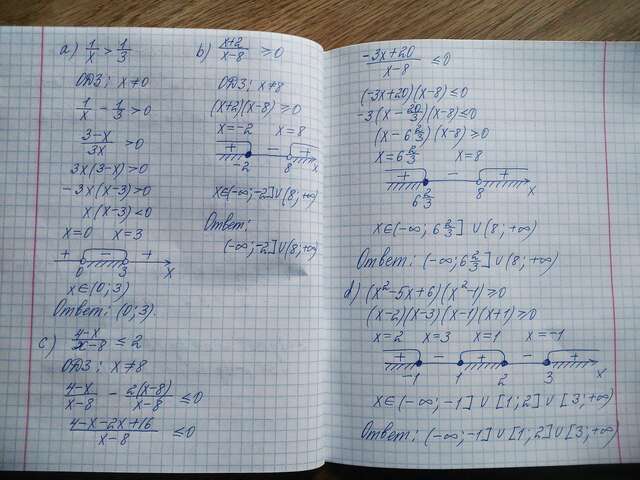 a) 1/x > 1/3
ОДЗ: x ≠ 0
1/x - 1/3 > 0
3-x/3x > 0
3x(3-x) > 0
-3x(x-3) > 0
x(x-3) < 0
x = 0 x = 3
+ - +
0 3 x
x ∈ (0; 3)
Ответ: (0; 3).
c) 4-x/x-8 ≤ 2
ОДЗ: x ≠ 8
4-x/x-8 - 2(x-8)/x-8 ≤ 0
4-x-2x+16/x-8 ≤ 0
b) x+2/x-8 ≥ 0
ОДЗ: x ≠ 8
(x+2)(x-8) ≥ 0
x = -2 x = 8
+ - +
-2 8 x
x ∈ (-∞; -2] ∪ (8; +∞)
Ответ:
(-∞; -2] ∪ (8; +∞)
-3x+20/x-8 ≤ 0
(-3x+20)(x-8) ≤ 0
-3(x - 20/3)(x-8) ≤ 0
(x - 6 2/3)(x-8) ≥ 0
x = 6 2/3 x = 8
+ - +
6 2/3 8 x
x ∈ (-∞; 6 2/3] ∪ (8; +∞)
Ответ: (-∞; 6 2/3] ∪ (8; +∞)
d) (x²-5x+6)(x²-1) ≥ 0
(x-2)(x-3)(x-1)(x+1) ≥ 0
x = 2 x = 3 x = 1 x = -1
+ - + - +
-1 1 2 3 x
x ∈ (-∞; -1] ∪ [1; 2] ∪ [3; +∞)
Ответ: (-∞; -1] ∪ [1; 2] ∪ [3; +∞)